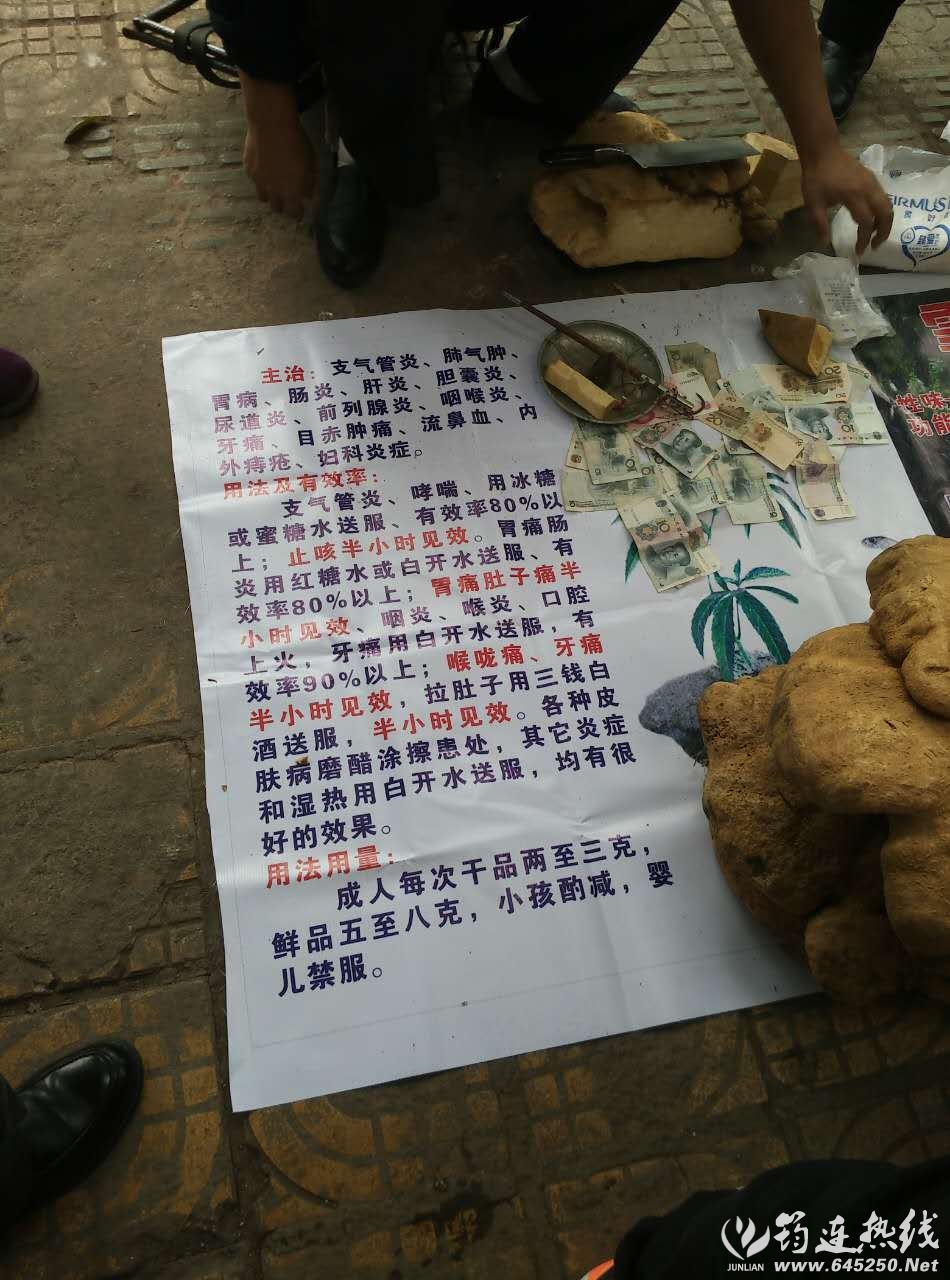 主治：支气管炎、肺气肿、
胃病、肠炎、肝炎、胆囊炎、
尿道炎、前列腺炎、咽喉炎、
牙痛、目赤肿痛、流鼻血、内
外痔疮、妇科炎症。
用法及有效率：
支气管炎、哮喘、用冰糖
或蜜糖水送服、有效率80%以
上；止咳半小时见效。胃痛肠
炎用红糖水或白开水送服、有
效率80%以上；胃痛肚子痛半
小时见效、咽炎、喉炎、口腔
上火，牙痛用白开水送服，有
效率90%以上；喉咙痛、牙痛
半小时见效，拉肚子用三钱白
酒送服，半小时见效。各种皮
肤病磨醋涂擦患处，其它炎症
和湿热用白开水送服，均有很
好的效果。
用法用量：
成人每次干品两至三克，
鲜品五至八克，小孩酌减，婴
儿禁服。
性味
功能
FIRMUS
筠连热线
JUNLIAN
www.645250.Net